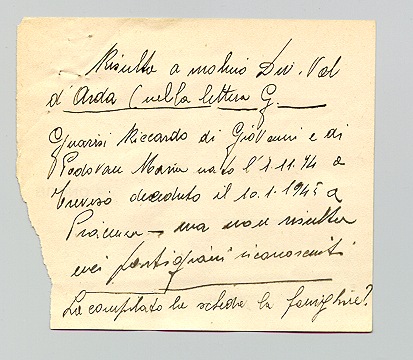 Risulta a matrice Div. Val
d'Arda (nella lettera G.
Guarisi Riccardo di Giovanni e di
Padovan Maria nato l'8.11.14 a
Treviso deceduto il 10.1.1945 a
Piacenza – ma non risulta
nei partigiani riconosciuti
La compilato la scheda la famiglia?